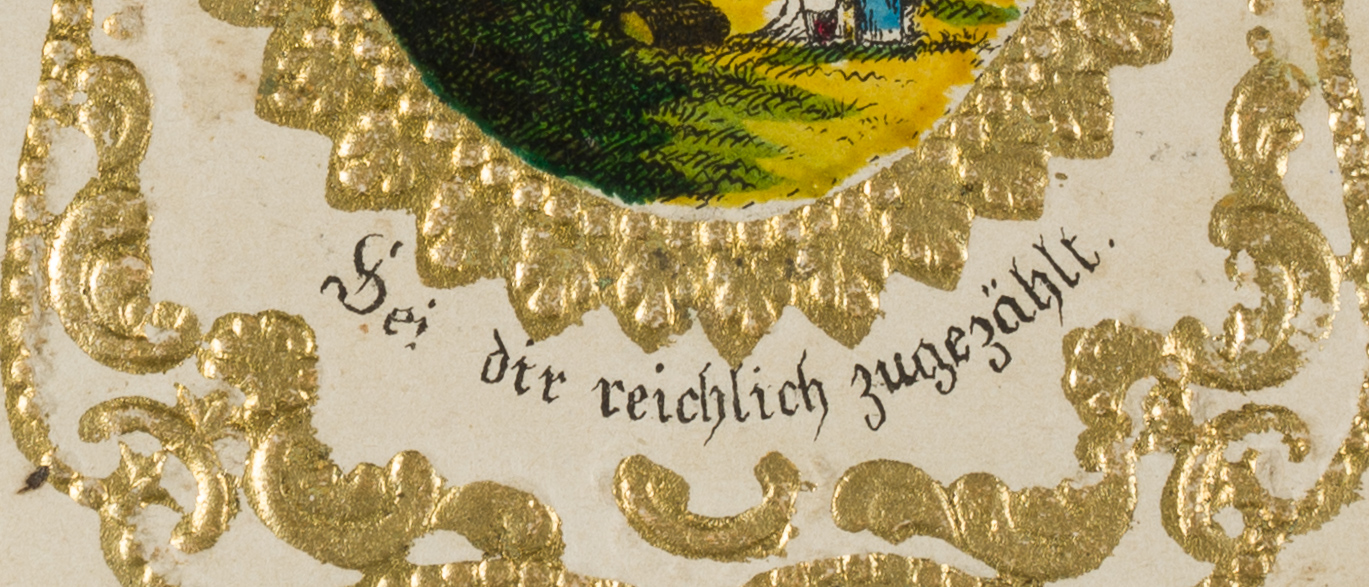 Sei dir reichlich zugezählt.